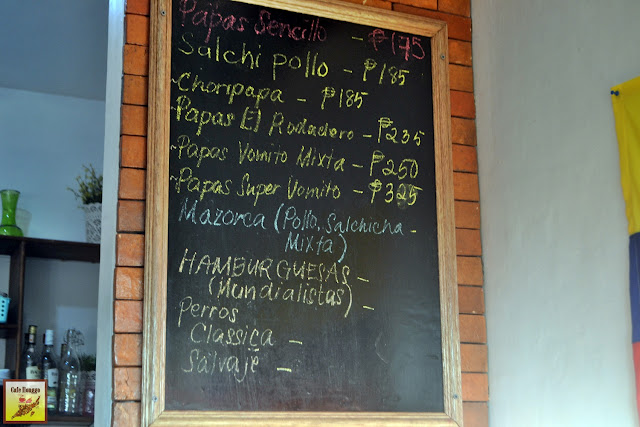 Papas Sencillo - ₱175
Salchi pollo - ₱185
~Choripapa - ₱185
~Papas El Rodadero - ₱235
~Papas Vomito Mixta - ₱250
~Papas Super Vomito - ₱325
Mazorca (Pollo, Salchicha -
Mixta)
HAMBURGUESAS -
(Mundialistas) -
Perros
Classica -
Salvaje -
Cafe Runggo